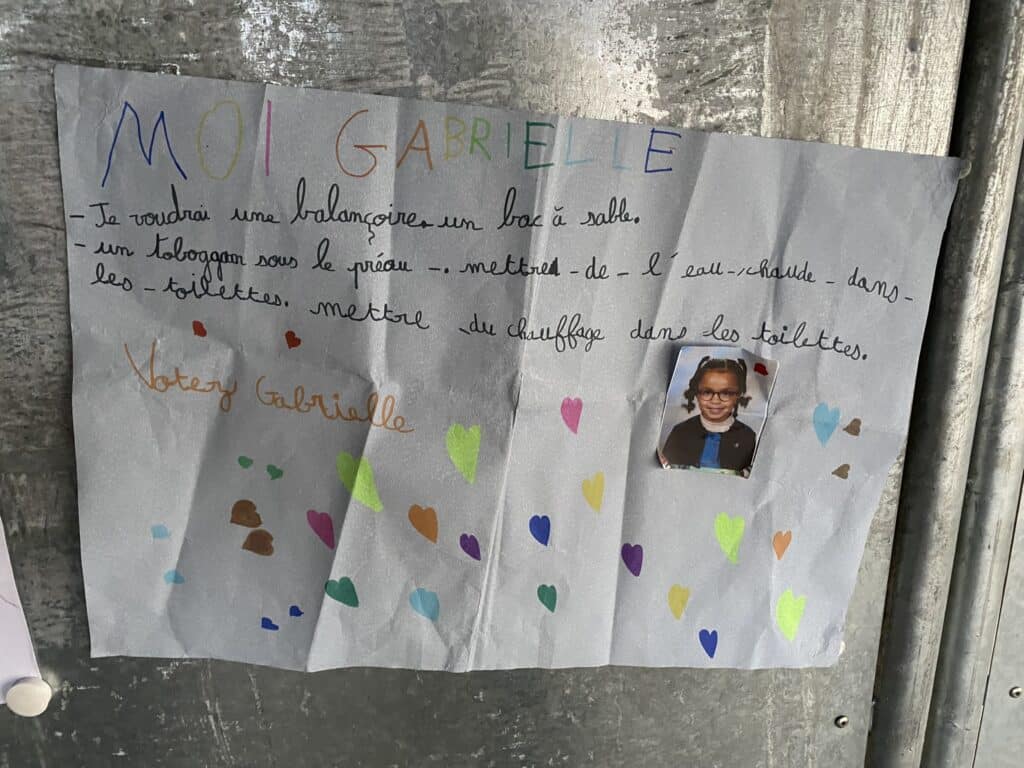 MOI GABRIELLE
- Je voudrai une balançoire. un bac à sable.
- un toboggan sous le préau -. mettre - de - l'eau - chaude - dans -
les - toilettes. mettre du chauffage dans les toilettes.
Votez Gabrielle